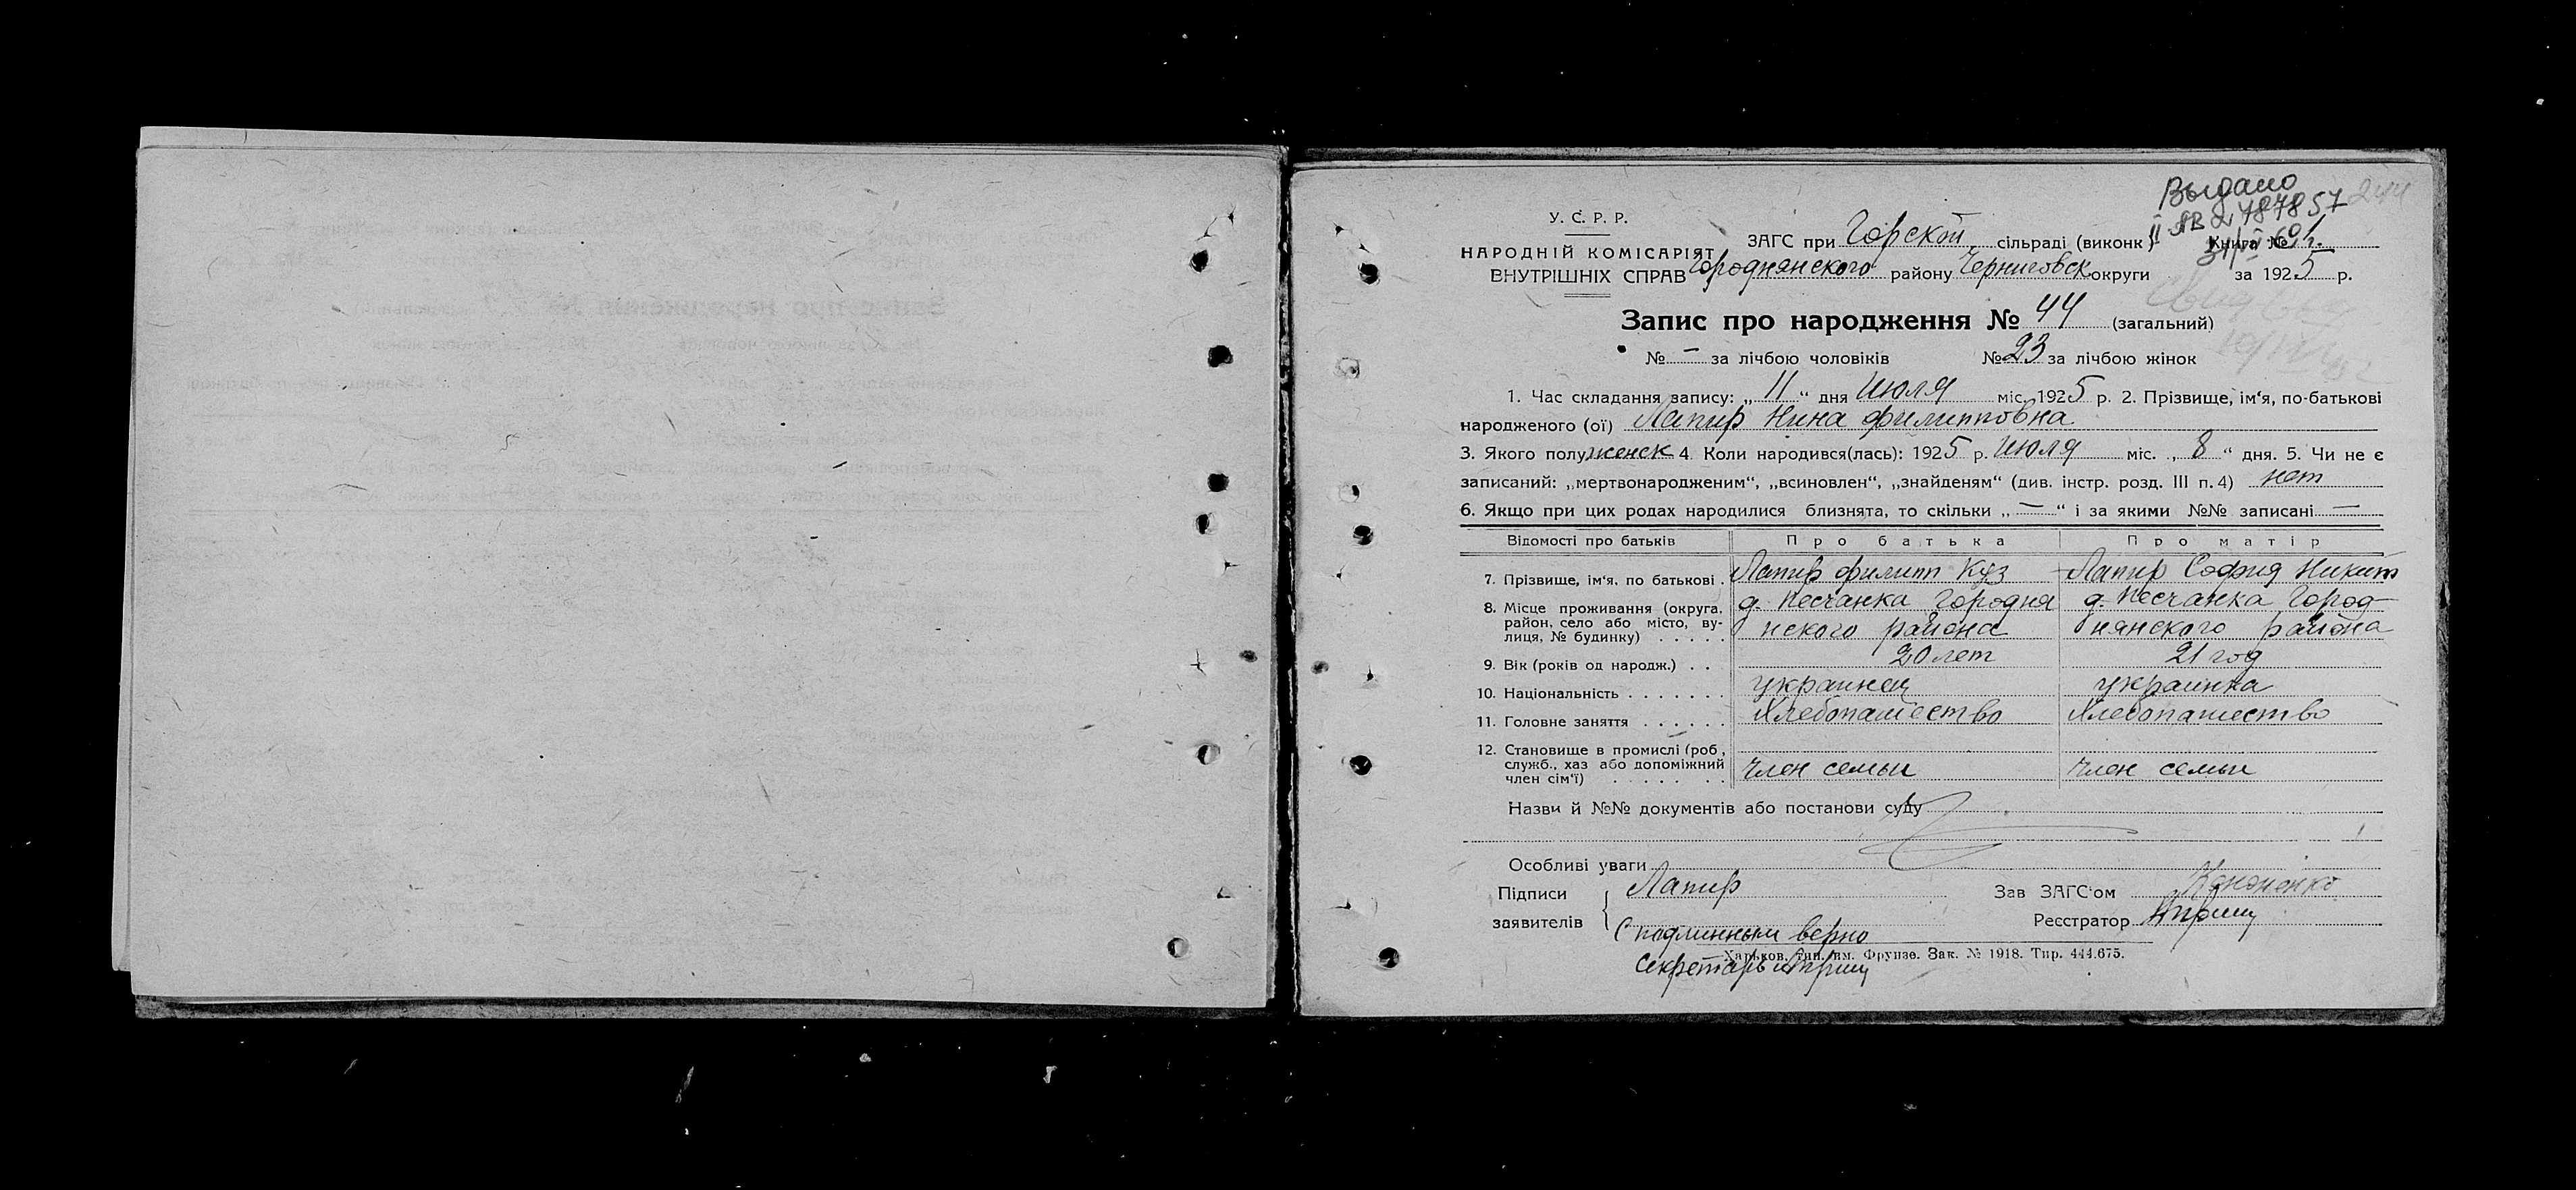 Выдано 244
II ЯВ 2787857
У. С. Р. Р.
ЗАГС при Горской сільраді (виконк) Книга №
НАРОДНІЙ КОМІСАРІЯТ
ВНУТРІШНІХ СПРАВ Городнянского району Черниговск округи за 1925 р.
Запис про народження № 44 (загальний)
№ — за лічбою чоловіків № 23 за лічбою жінок
1. Час складання запису: „11“ дня Июля міс. 1925 р. 2. Прізвище, ім‘я, по-батькові
народженого (ої) Лапир Нина Филипповна
3. Якого полу женск 4. Коли народився(лась): 1925 р. Июля міс. „8“ дня. 5. Чи не є
записаний: „мертвонародженим“, „всиновлен“, „знайденям“ (див. інстр. розд. III п. 4) нет
6. Якщо при цих родах народилися близнята, то скільки „—“ і за якими №№ записані —
Відомості про батьків Про батька Про матір
7. Прізвище, ім‘я, по батькові . Лапир Филип Куз Лапир София Никит
8. Місце проживання (округа, д. Песчанка Городня д. Песчанка Город-
район, село або місто, ву- нского района нянского района
лиця, № будинку) . . . . .
9. Вік (років од народж.) . . 20 лет 21 год
10. Національність . . . . . . . украинец украинка
11. Головне заняття . . . . . . Хлебопашество Хлебопашество
12. Становище в промислі (роб.,
служб., хаз або допоміжний член семьи член семьи
член сім‘ї) . . . . . . . .
Назви й №№ документів або постанови суду
Особливі уваги
Підписи Лапир Зав ЗАГС‘ом Кононенко
заявителів Реєстратор
С подлинным верно
Харьков. тип. им. Фрунзе. Зак. № 1918. Тир. 444.675.
Секретарь